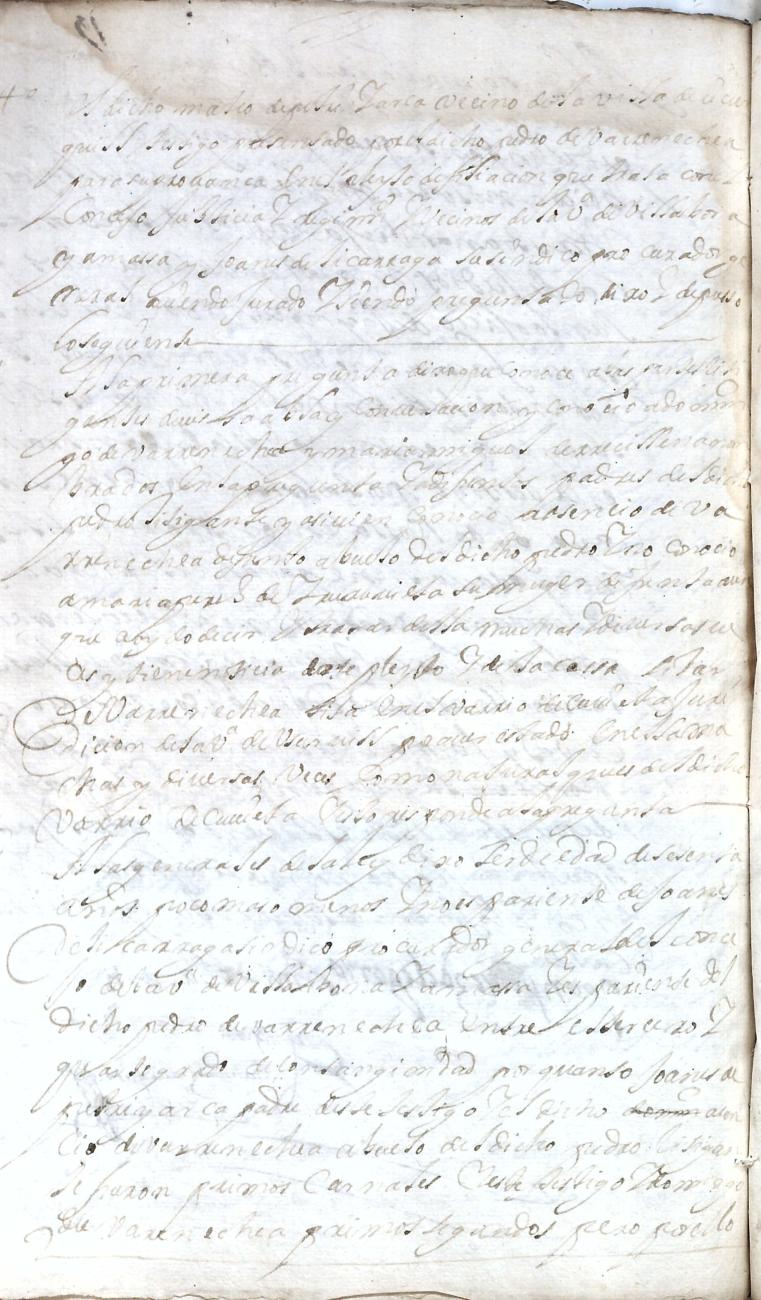 El dicho mateo de vecino de la villa de
testigo presentado por el dicho pedro de varrenechea
para su provanza en el pleyto de filiacion que trata con el
Concejo Justicia y Regimi.to y Vecinos de la v.a de Villabona
y amassa y Joanes de su sindico procurador ge
neral aviendo Jurado y siendo preguntado dixo y depusso
lo seguiente
A la primera pregunta dixo que conoce a las partes liti
gantes de vista habla y conversacion y conocio a domin
go de varrenechea y maria miguel de
brados en la pregunta y difuntos padres del dicho
pedro litigante y asi bien conocio a asencio de va
rrenechea difunto abuelo del dicho pedro y no conocio
a maria perez de su muger difunta aun
que a oydo decir y tratar della muchas y diversas ve
ces y tiene noticia deste pleyto y de la cassa solar
de Varrenechea sita en el varrio de jure
dicion de la v.a de por aver estado en ella mu
chas y diversas veces como natural que es del dicho
varrio de y esto responde a la pregunta
A las generales de la ley dixo ser de edad de sesenta
años poco mas o menos y no es pariente de Joanes
de sindico procurador general del conce
jo de la v.a de Villabona y amassa y es pariente del
dicho pedro de varrenechea entre el tercero y
quarto grado de consanginidad por quanto Joanes de
padre deste testigo y el dicho asen
cio de varrenechea abuelo del dicho pedro litigan
te fueron primos carnales y este testigo y Domingo
de Varrenechea primos segundos pero por ello